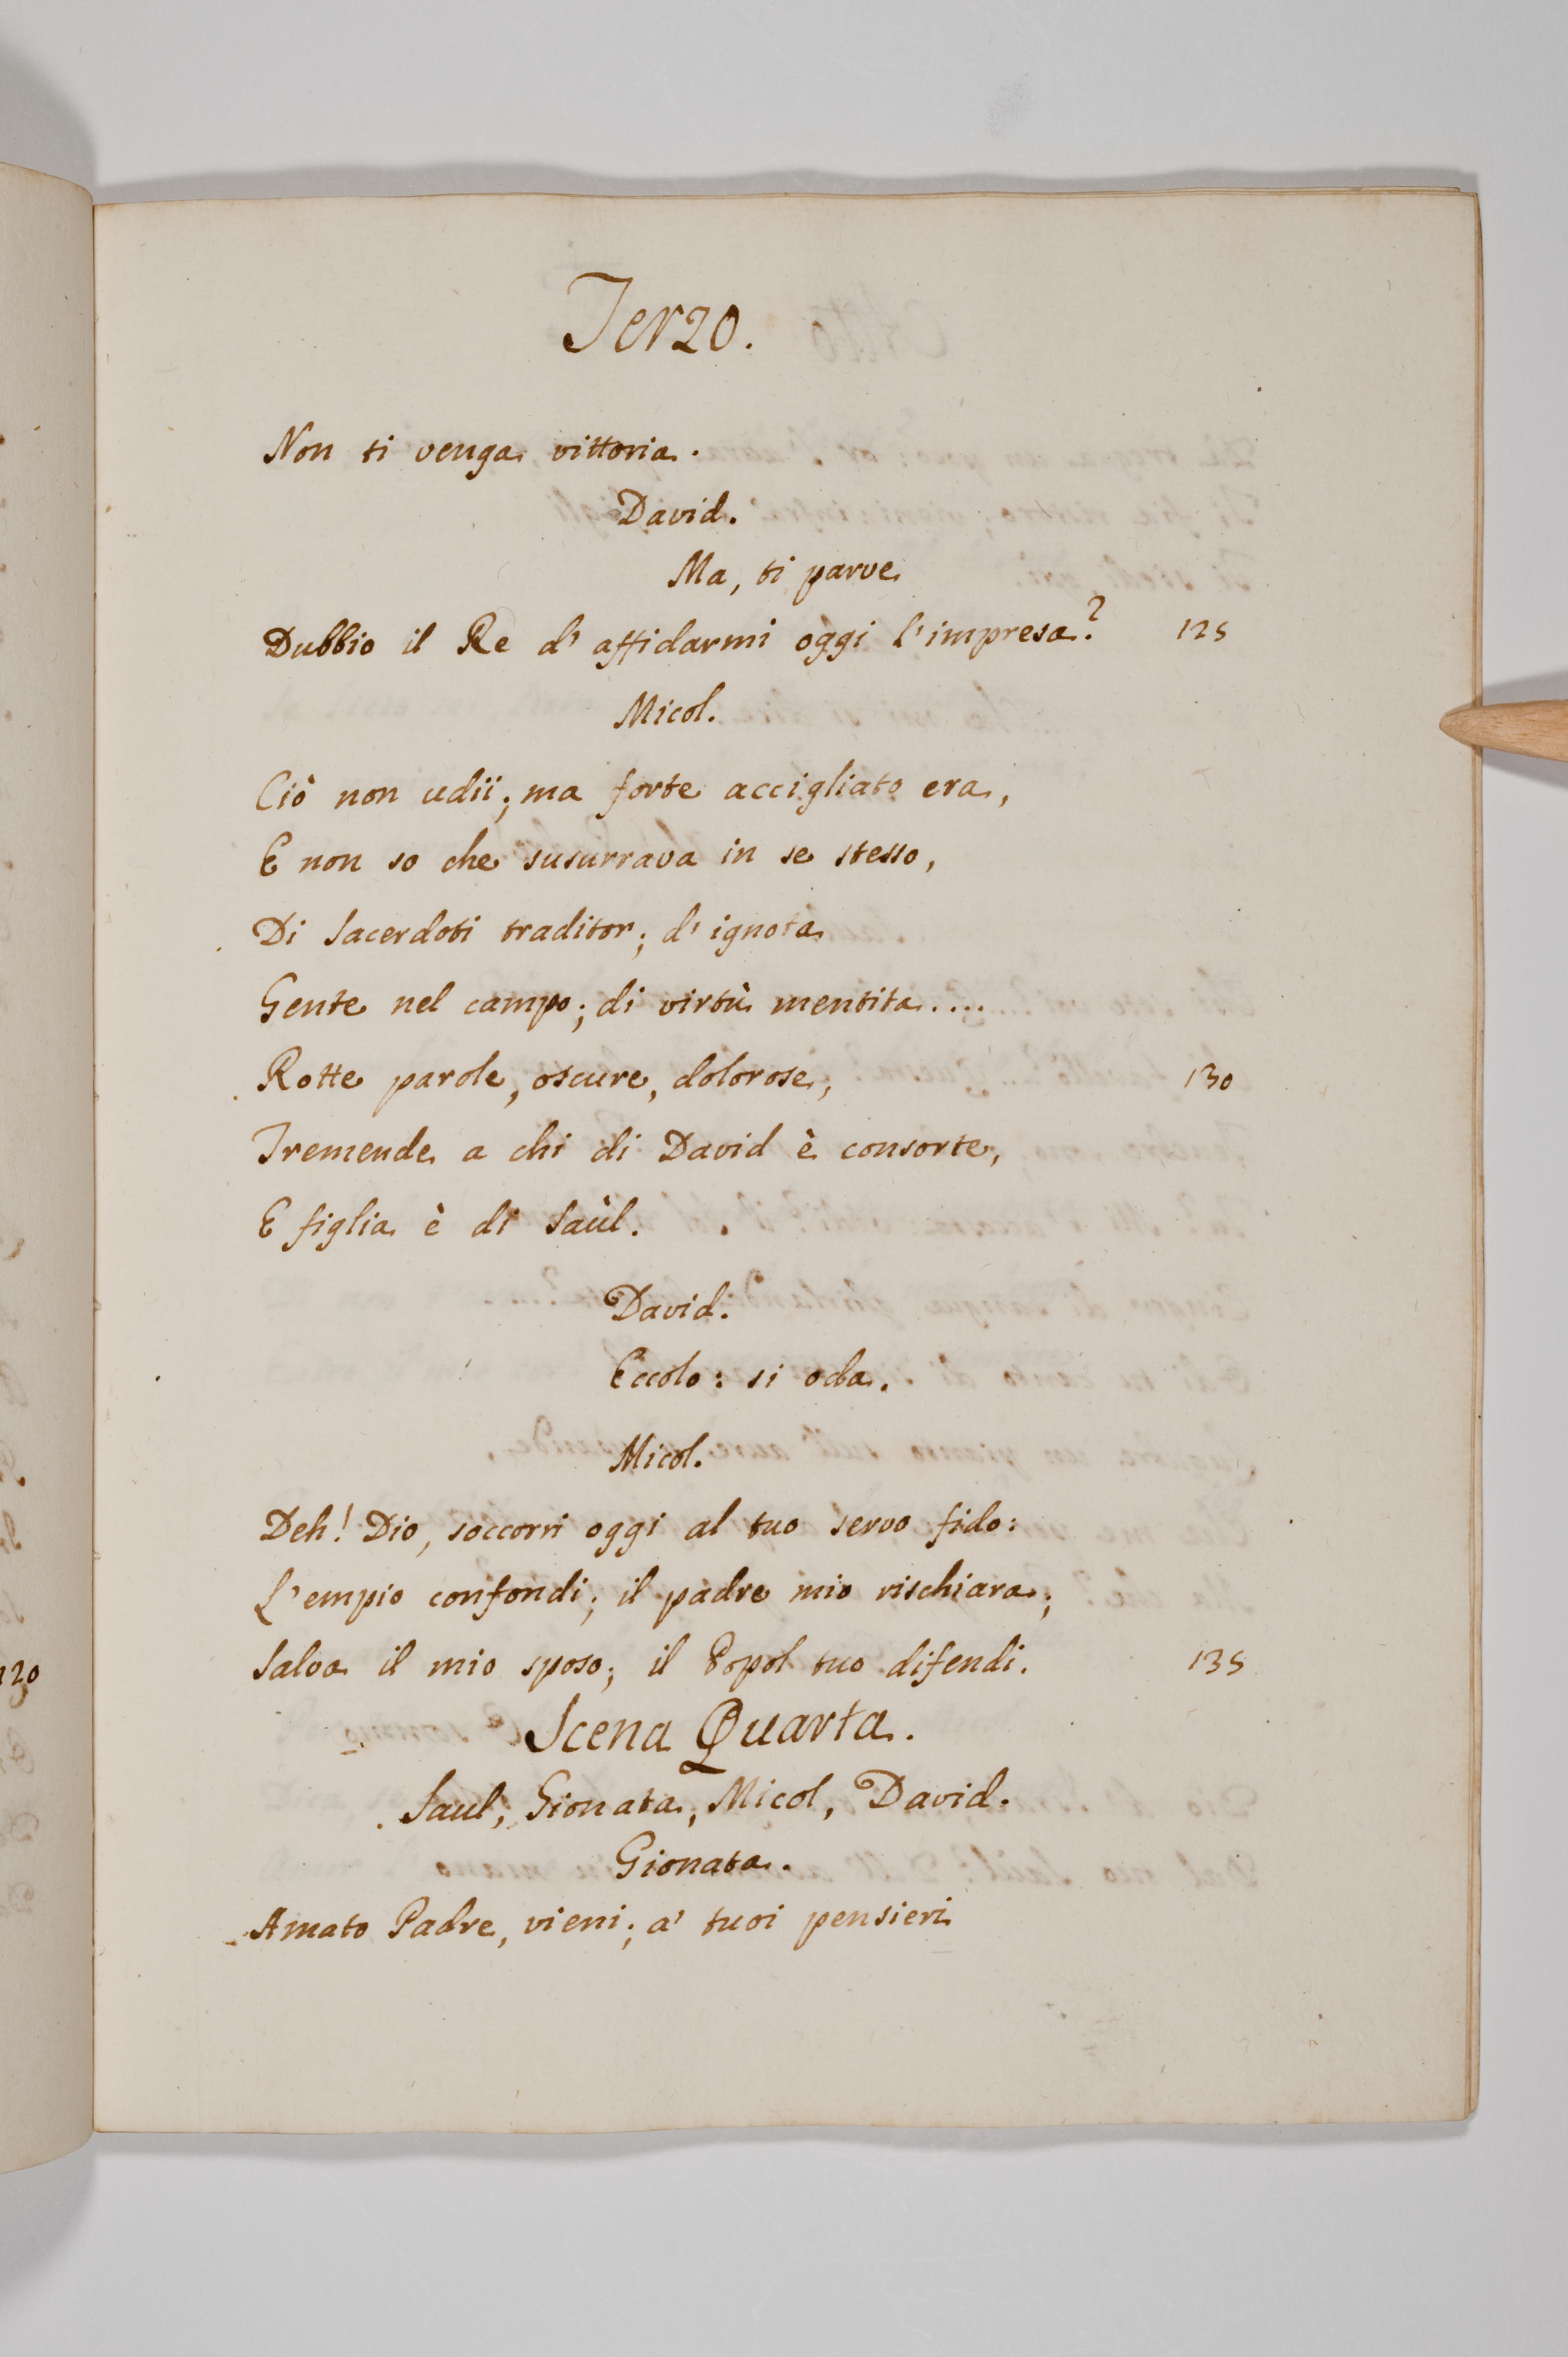 Terzo.
Non ti venga vittoria.
David.
Ma, ti parve
Dubbio il Re d' affidarmi oggi l'impresa? 125
Micol.
Ciò non udii; ma forte accigliato era,
E non so che susurrava in se stesso,
Di Sacerdoti traditor; d' ignota
Gente nel campo; di virtù mentita....
Rotte parole, oscure, dolorose, 130
Tremende a chi di David è consorte,
E figlia è di Saùl.
David.
Eccolo: si oda.
Micol.
Deh! Dio, soccorri oggi al tuo servo fido:
L'empio confondi; il padre mio rischiara;
Salva il mio sposo; il Popol tuo difendi. 135
Scena Quarta.
Saul, Gionata, Micol, David.
Gionata.
Amato Padre, vieni; a' tuoi pensieri
120